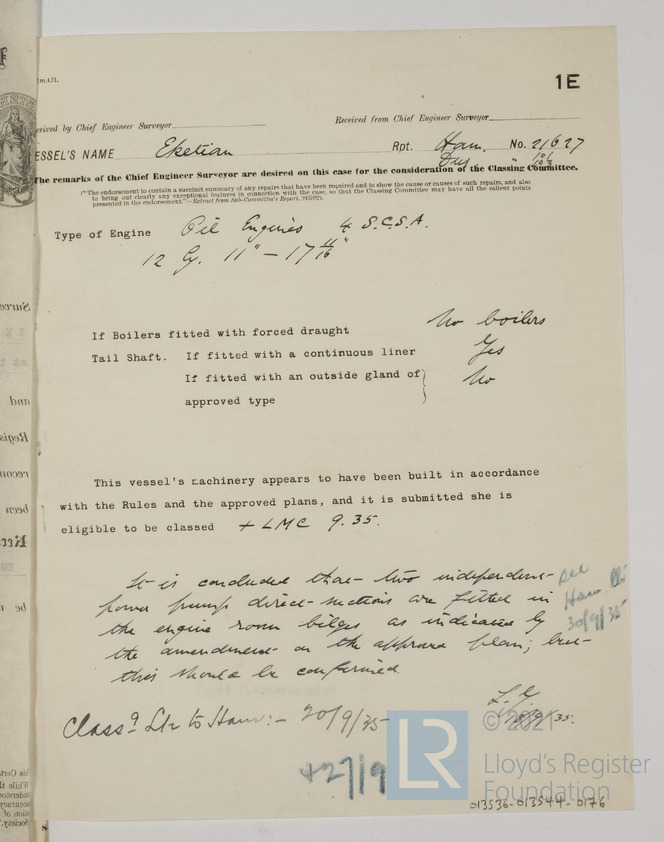 1m,4,31.
1E
ceived by Chief Engineer Surveyor
Received from Chief Engineer Surveyor
ESSEL'S NAME Eketian Rpt. Ham. No. 21627
The remarks of the Chief Engineer Surveyor are desired on this case for the consideration of the Classing Committee.
("The endorsement to contain a succinct summary of any repairs that have been required and to show the cause or causes of such repairs, and also
to bring out clearly any exceptional features in connection with the case, so that the Classing Committee may have all the salient points
presented in the endorsement."—Extract from Sub-Committee's Report,
Type of Engine Oil Engines 4 S.C.S.A.
12 Cy. 11" – 17 11/16"
If Boilers fitted with forced draught No boilers
Tail Shaft. If fitted with a continuous liner Yes
If fitted with an outside gland of No
approved type
This vessel's machinery appears to have been built in accordance
with the Rules and the approved plans, and it is submitted she is
eligible to be classed + LMC 9.35.
It is concluded that two independent
power pump direct suctions are fitted in
the engine room bilges as indicated by
the amendment on the approved plan; but
this should be confirmed
see
Ham
30/9/35
Class Ltr to Ham:- 20/9/35
27/9
LR
© 2021
Lloyd's Register
Foundation
013536-013544-0176